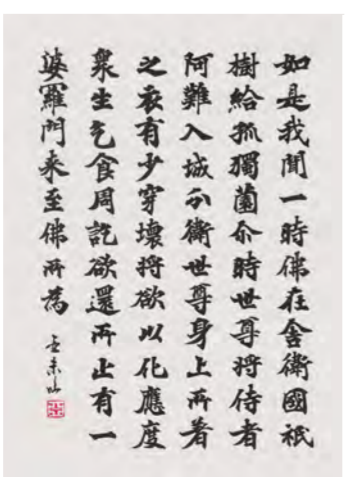 如是我聞一時佛在舍衛國祇
樹給孤獨園尒時世尊將侍者
阿難入城分衛世尊身上所著
之衣有少穿壞將欲以化應度
衆生乞食周訖欲還所止有一
婆羅門来至佛所為